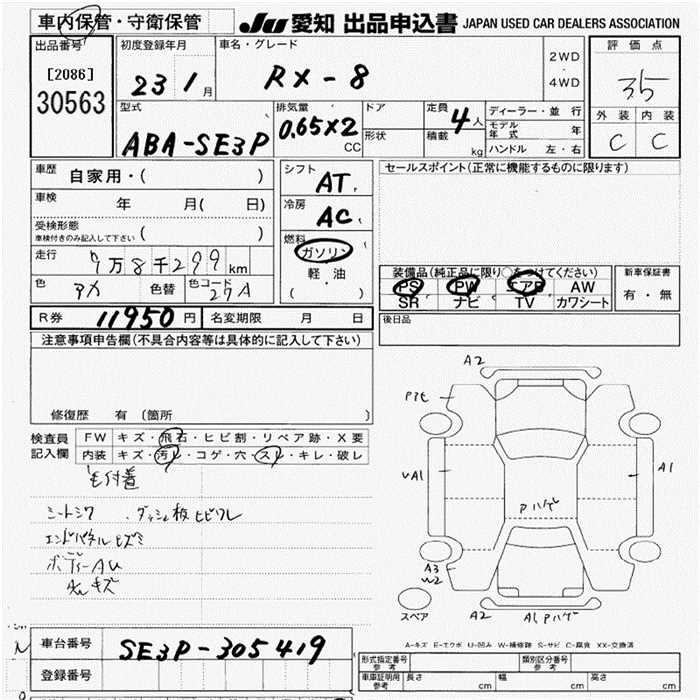 車内保管・守衛保管
JU 愛知 出品申込書 JAPAN USED CAR DEALERS ASSOCIATION
出品番号
[2086]
30563
初度登録年月
23 1月
車名・グレード
RX-8
2WD
・
4WD
評価点
3.5
外装 内装
C C
型式
ABA-SE3P
排気量
0.65×2
CC
ドア
形状
定員
4人
積載
kg
ディーラー・並行
モデル年式 年
ハンドル 左・右
車歴
自家用・( )
車検
年 月( 日)
受検形態
車検付きのみ記入して下さい ( )
走行
9万8千299km
色
アカ
色替
色コード
27A
シフト
AT
冷房
AC
燃料
ガソリン
軽・油
( ・ )
セールスポイント(正常に機能するものに限ります)
装備品(純正品に限り○をつけてください)
PS PW エアB AW
SR ナビ TV カワシート
新車保証書
有・無
後日品
R券 11950円
名変期限 月 日
注意事項申告欄(不具合内容等は具体的に記入して下さい)
修復歴 有 〔箇所 〕
検査員記入欄
FW キズ・飛石・ヒビ割・リペア跡・X要
内装 キズ・汚レ・コゲ・穴・スレ・キレ・破レ
毛付着
シートシワ ・ダッシュ板ヒビワレ
エンドパネルヒズミ
ボディーAU
キズ
A2
A1
Pハゲ
A3
W2
A2
A1 Pハゲ
スペア
A-キズ E-エクボ U-凹み W-補修跡 S-サビ C-腐食 XX-交換済
車台番号
SE3P-305419
登録番号
形式指定番号
参考
類別区分番号
参考
車庫証明用
参考
長さ cm
幅 cm
高さ cm